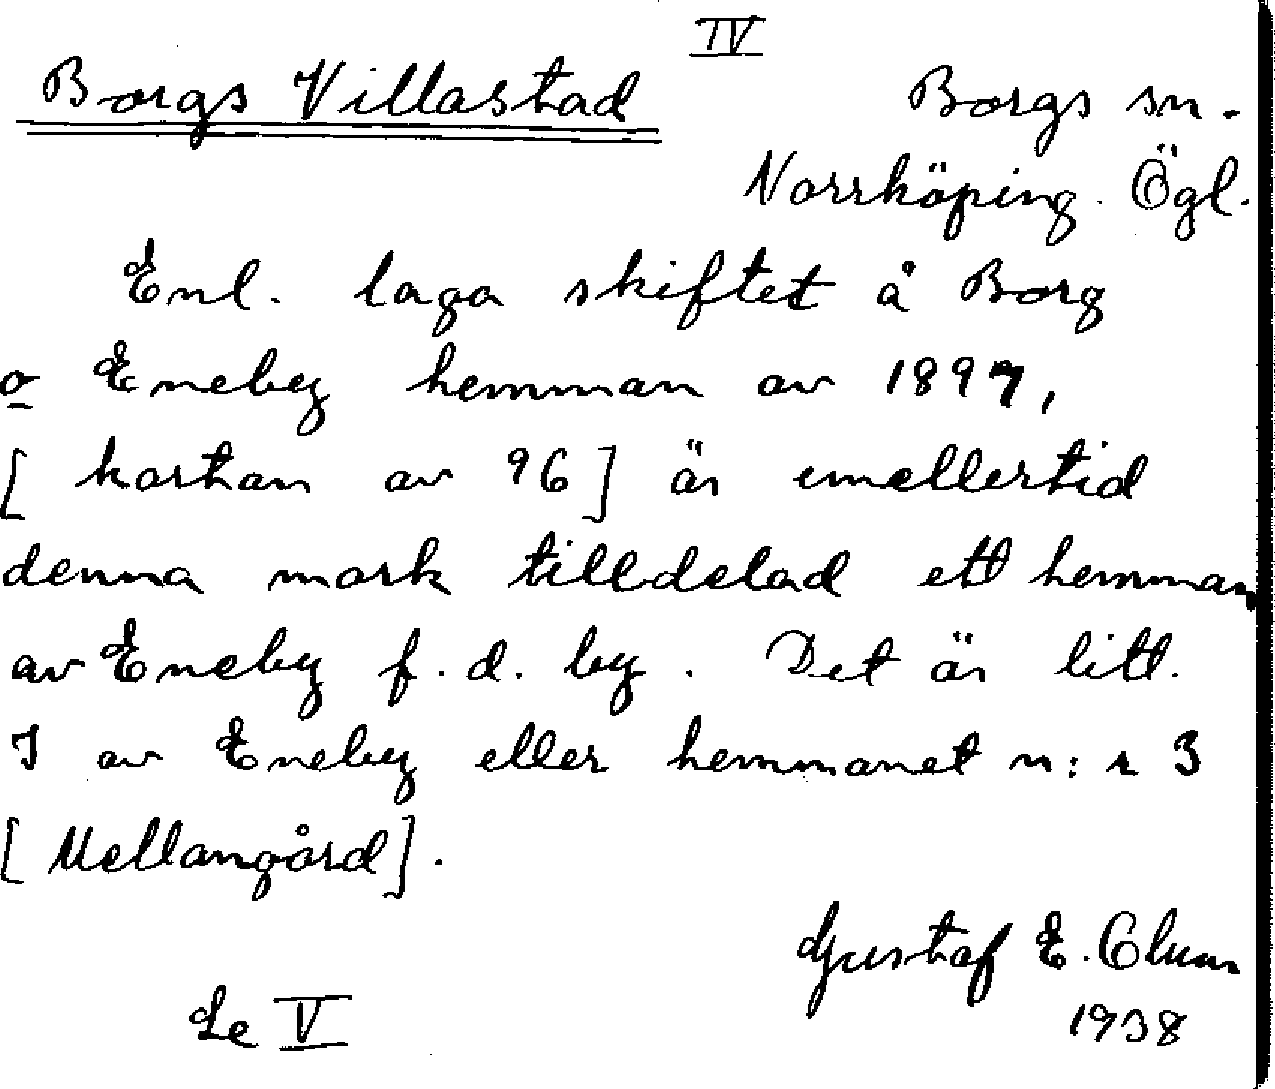 IV
Borgs Villastad
Borgs sn.
Norrköping. Ögl.
Enl. laga skiftet å Borg
o Eneby hemman av 1897,
[ kartan av 96] är emellertid
denna mark tilldelad ett hemman
av Eneby f.d. by. Det är litt.
I av Eneby eller hemmanet n:r 3
[ Mellangård].
Gustaf E. Clum
1938
Se V